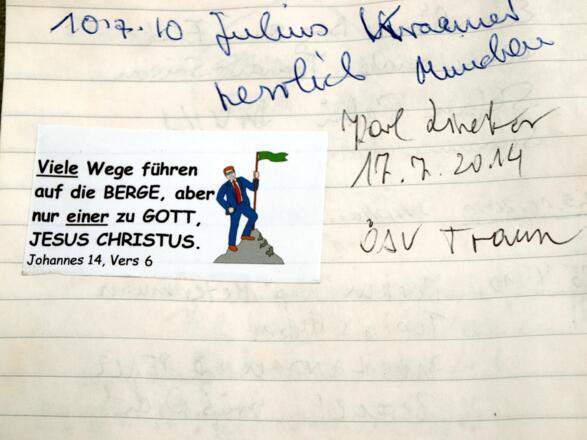 10.7.10 Julius Kraemer
herrlich München
Karl
17.7.2014
ÖSV Traun
Viele Wege führen
auf die BERGE, aber
nur einer zu GOTT,
JESUS CHRISTUS.
Johannes 14, Vers 6